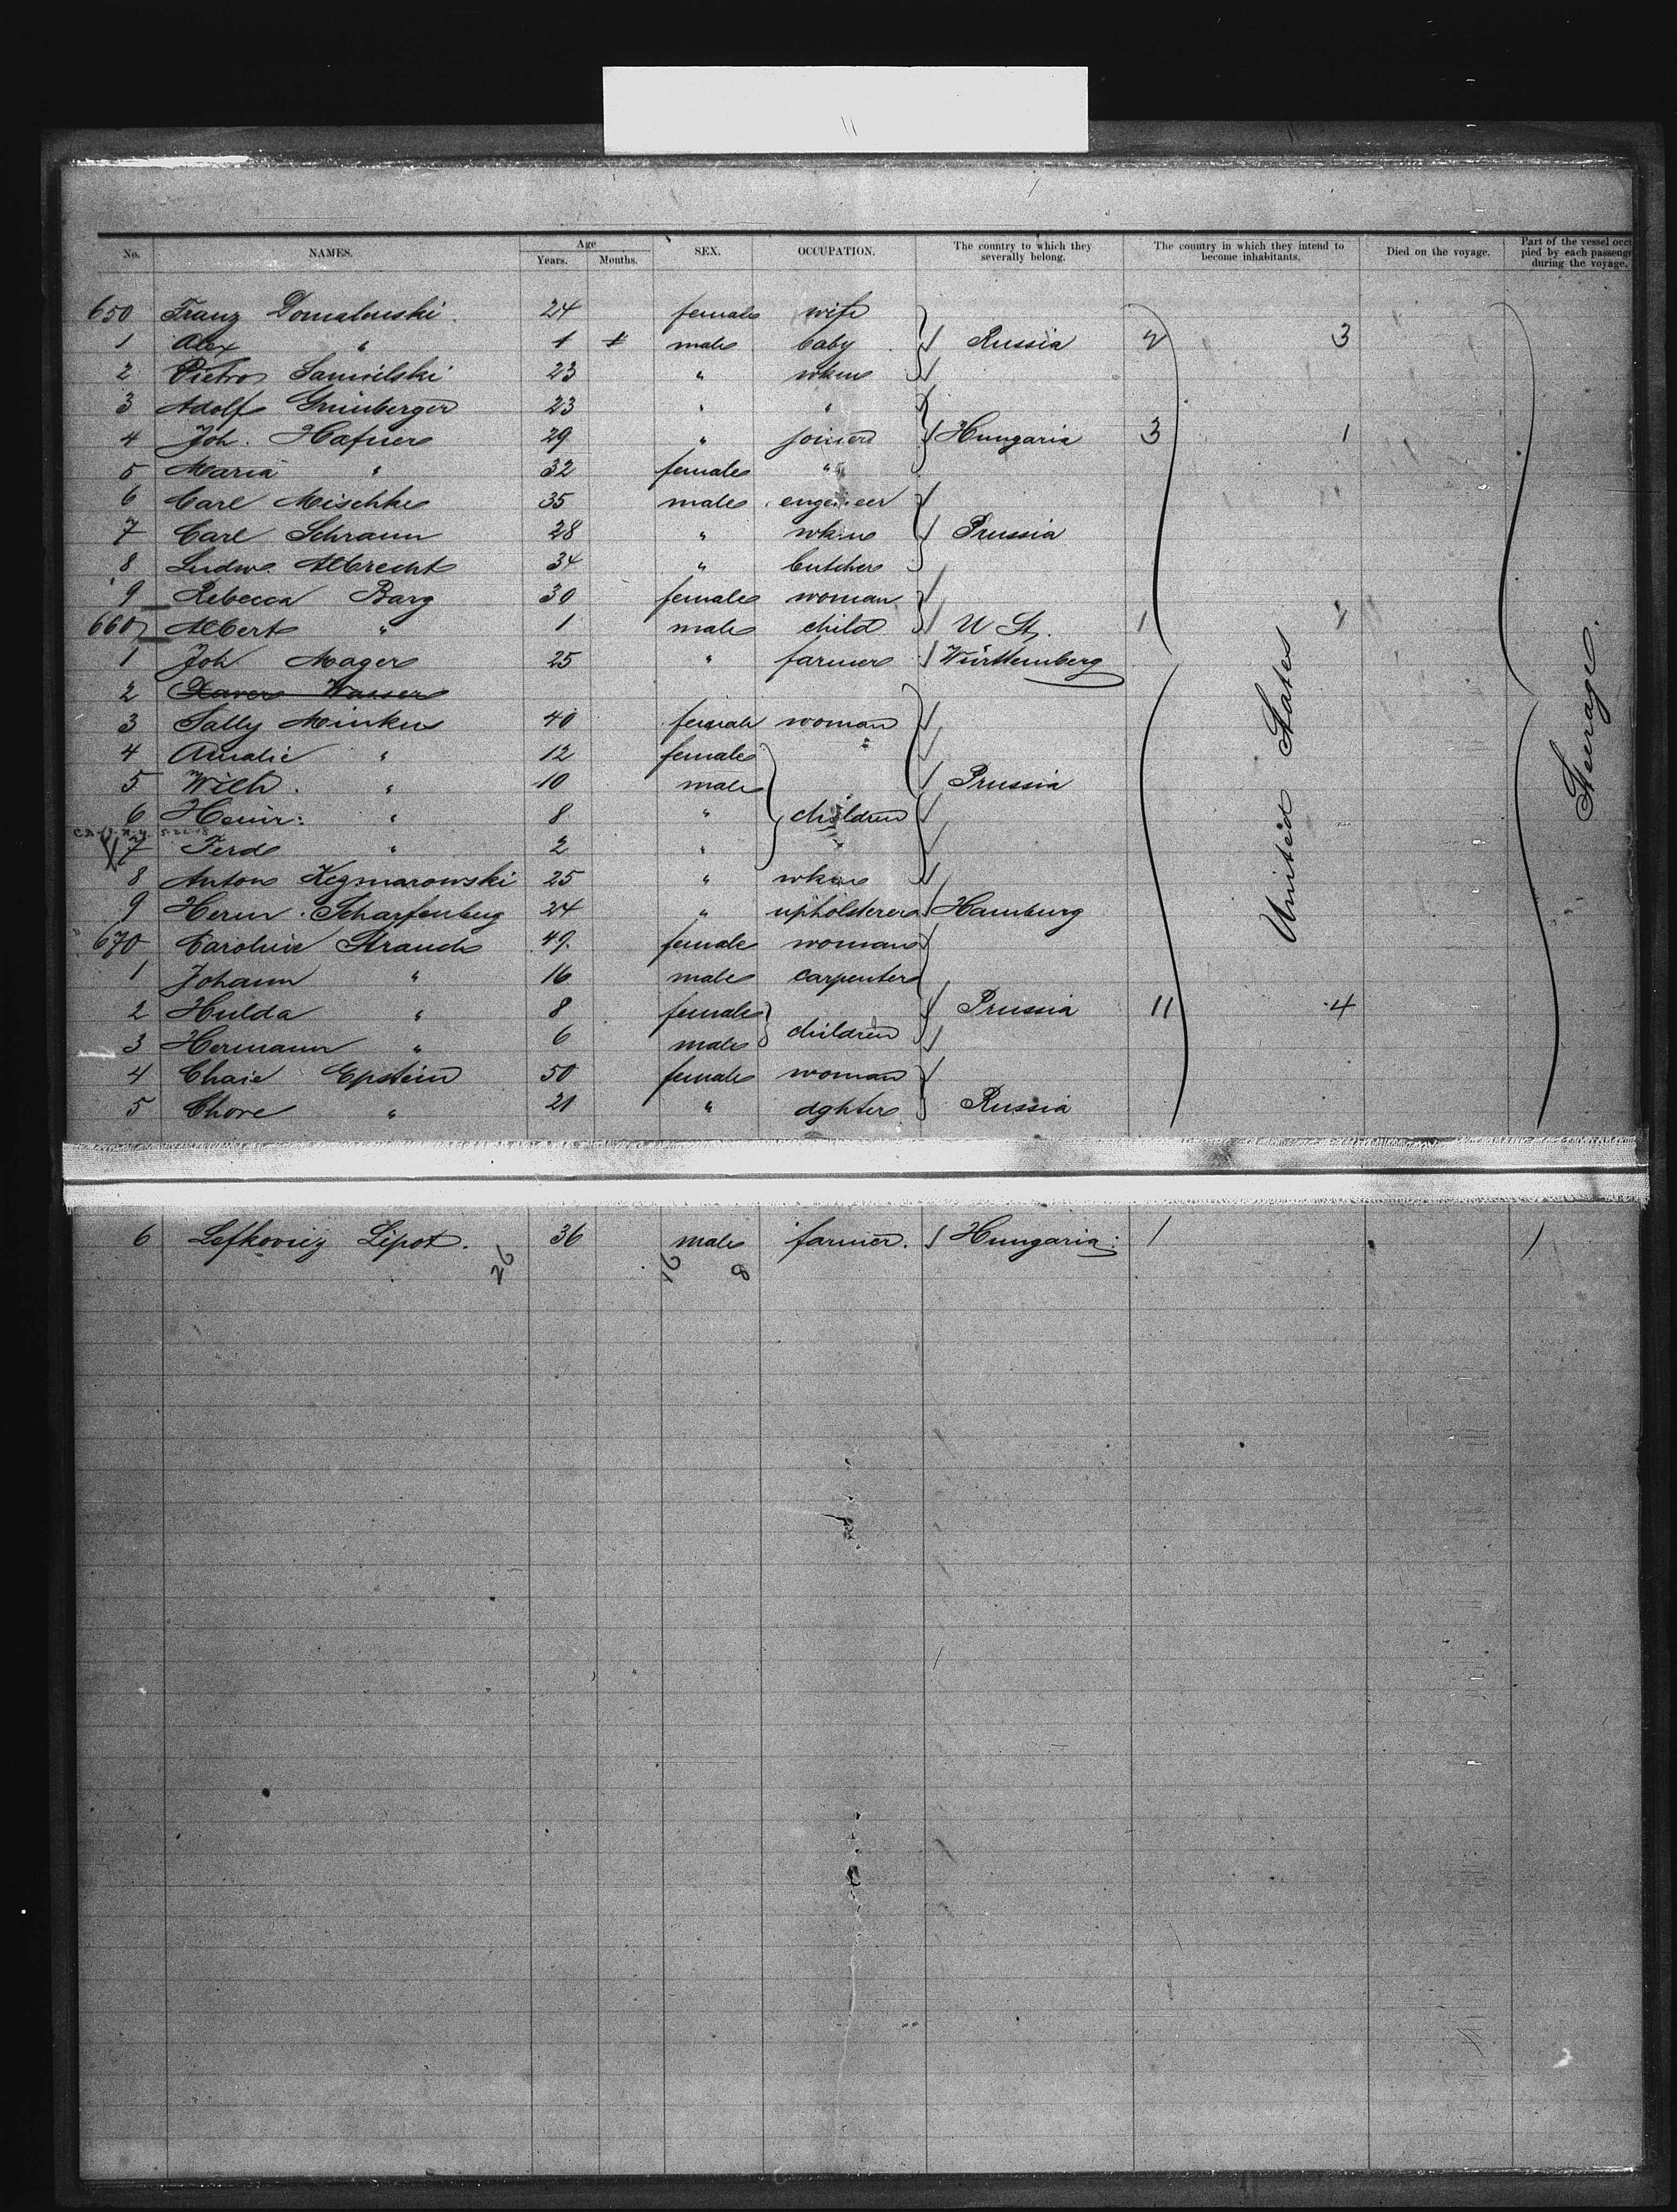 No. NAMES. Age Years. Months. SEX. OCCUPATION. The country to which they severally belong. The country in which they intend to become inhabitants. Died on the voyage. Part of the vessel occu pied by each passenge during the voyage.
650 Franz Domalenski. 24 female wife
1 Alex " 1 male baby Russia 2 3
2 Pietro 23 " wkm
3 Adolf Grünberger 23 " "
4 Joh. Hafner 29 " joiner Hungaria 3 1
5 Maria " 32 female "
6 Carl Mischke 35 male engineer
7 Carl Schramm 28 " wkm Prussia
8 Ludw. Albrecht 34 " butcher
9 Rebecca Barg 30 female woman
660 Albert " 1 male child U St. 1
1 Joh Mager 25 " farmer Württemberg
2 Xaver Wasser
3 Sally Minkus 40 female woman
4 Amalie " 12 female "
5 Wilh. " 10 male Prussia
6 Heinr: " 8 " children
7 Ferd " 2 "
8 Anton Kegmarowski 25 " wkm
9 Herm. Scharfenberg 24 " upholsterer Hamburg
670 Caroline Strauch 49 female woman
1 Johann " 16 male carpenter
2 Hulda " 8 female Prussia 11 4
3 Hermann " 6 male children
4 Chaie Epstein 50 female woman
5 Chore " 21 " dghter Russia
United States
Steerage.
6 Lefkovicz Lipot. 36 male farmer. Hungaria 1
26 8